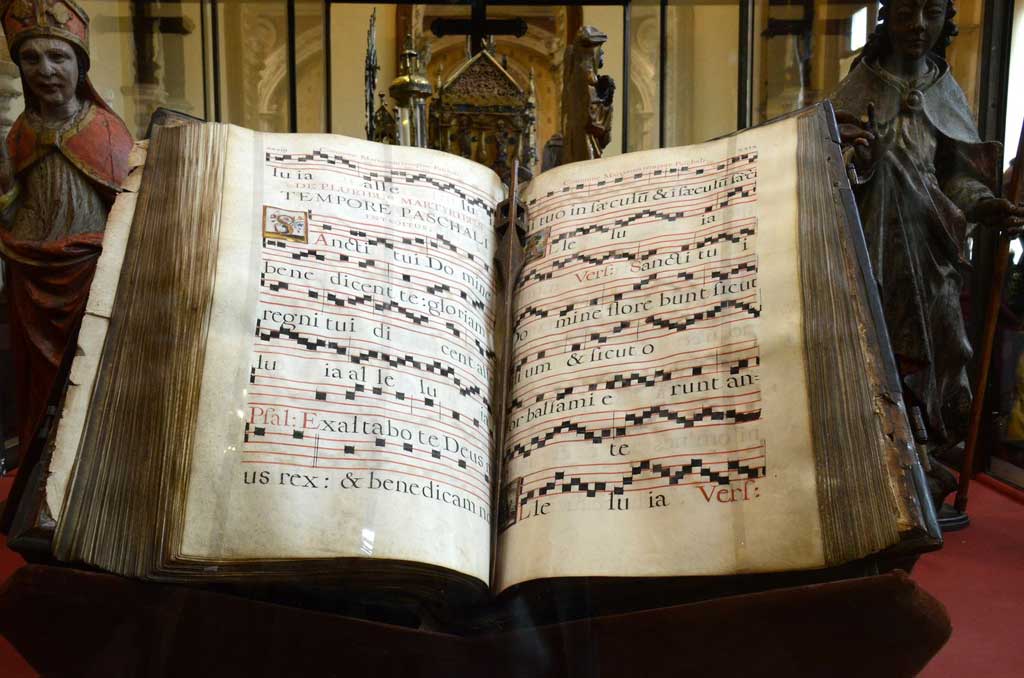 luia alle lu
DE PLURIBUS MARTYRIBUS
TEMPORE PASCHALI
INTROITUS.
Sancti tui Domine
bene dicent te: gloriam
regni tui di cent al
lu ia al le lu ia
Psal: Exaltabo te Deus
us rex: & benedicam no
tuo in sæculũ & i sæculũ sæc
le lu ia
Vers: Sancti tu i
Do mine flore bunt sicut
ium & sicut o
or balsami e runt an=
te
Lle lu ia Vers: